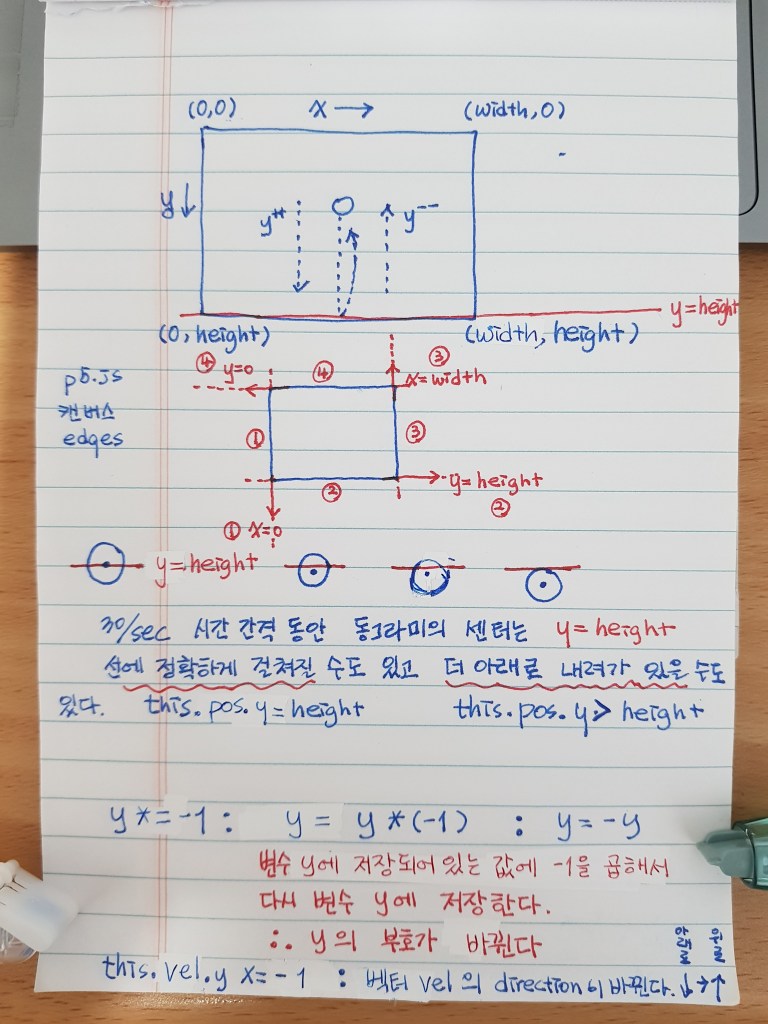 (0,0) x → (width,0)
y ↓
y++ y--
y=height
(0, height) (width, height)
④ y=0 ④ ③
x=width
p5.js
캔버스
edges
① ③
y=height
② ②
① x=0
y=height
30/sec 시간 간격 동안 동그라미의 센터는 y=height
선에 정확하게 걸쳐질 수도 있고 더 아래로 내려가 있을 수도
있다. this.pos.y=height this.pos.y> height
y *= -1 : y = y *(-1) : y = -y
변수 y에 저장되어 있는 값에 -1을 곱해서
다시 변수 y에 저장한다.
∴ y의 부호가 바뀐다
아래로 위로
this.vel.y x= -1 : 벡터 vel의 direction이 바뀐다. ↓→↑